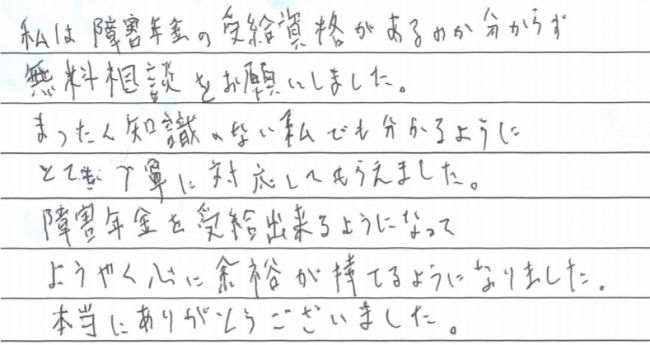 私は障害年金の受給資格があるのか分からず
無料相談をお願いしました。
まったく知識のない私でも分かるように
とても丁寧に対応してもらえました。
障害年金を受給出来るようになって
ようやく心に余裕が持てるようになりました。
本当にありがとうございました。